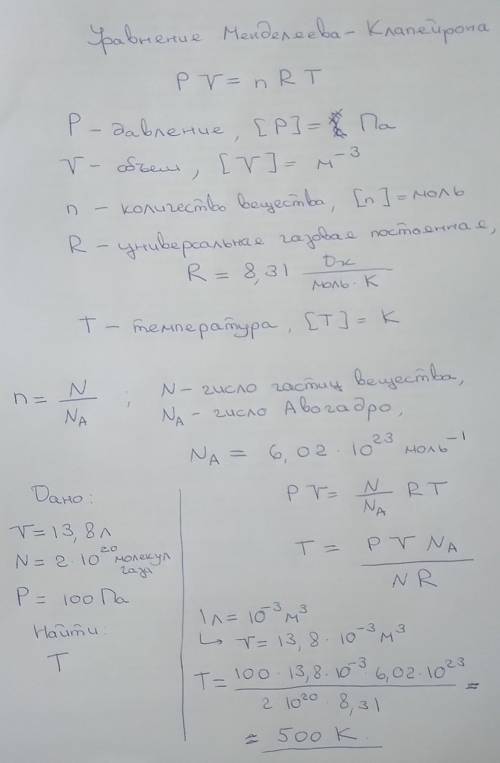 Уравнение Менделеева - Клапейрона
P V = n R T
P - давление, [P] = Па
V - объем, [V] = м⁻³
n - количество вещества, [n] = моль
R - универсальная газовая постоянная,
R = 8,31 Дж / моль · К
T - температура, [T] = K
n = N / N_A ; N - число частиц вещества,
N_A - число Авогадро,
N_A = 6,02 · 10²³ моль⁻¹
Дано:
V = 13,8 л
N = 2 · 10²⁰ молекул газа
P = 100 Па
Найти:
T
P V = N / N_A RT
T = P V N_A / N R
1 л = 10⁻³ м³
↳ V = 13,8 · 10⁻³ м³
T = 100 · 13,8 · 10⁻³ · 6,02 · 10²³ / 2 10²⁰ · 8,31 =
≈ 500 K